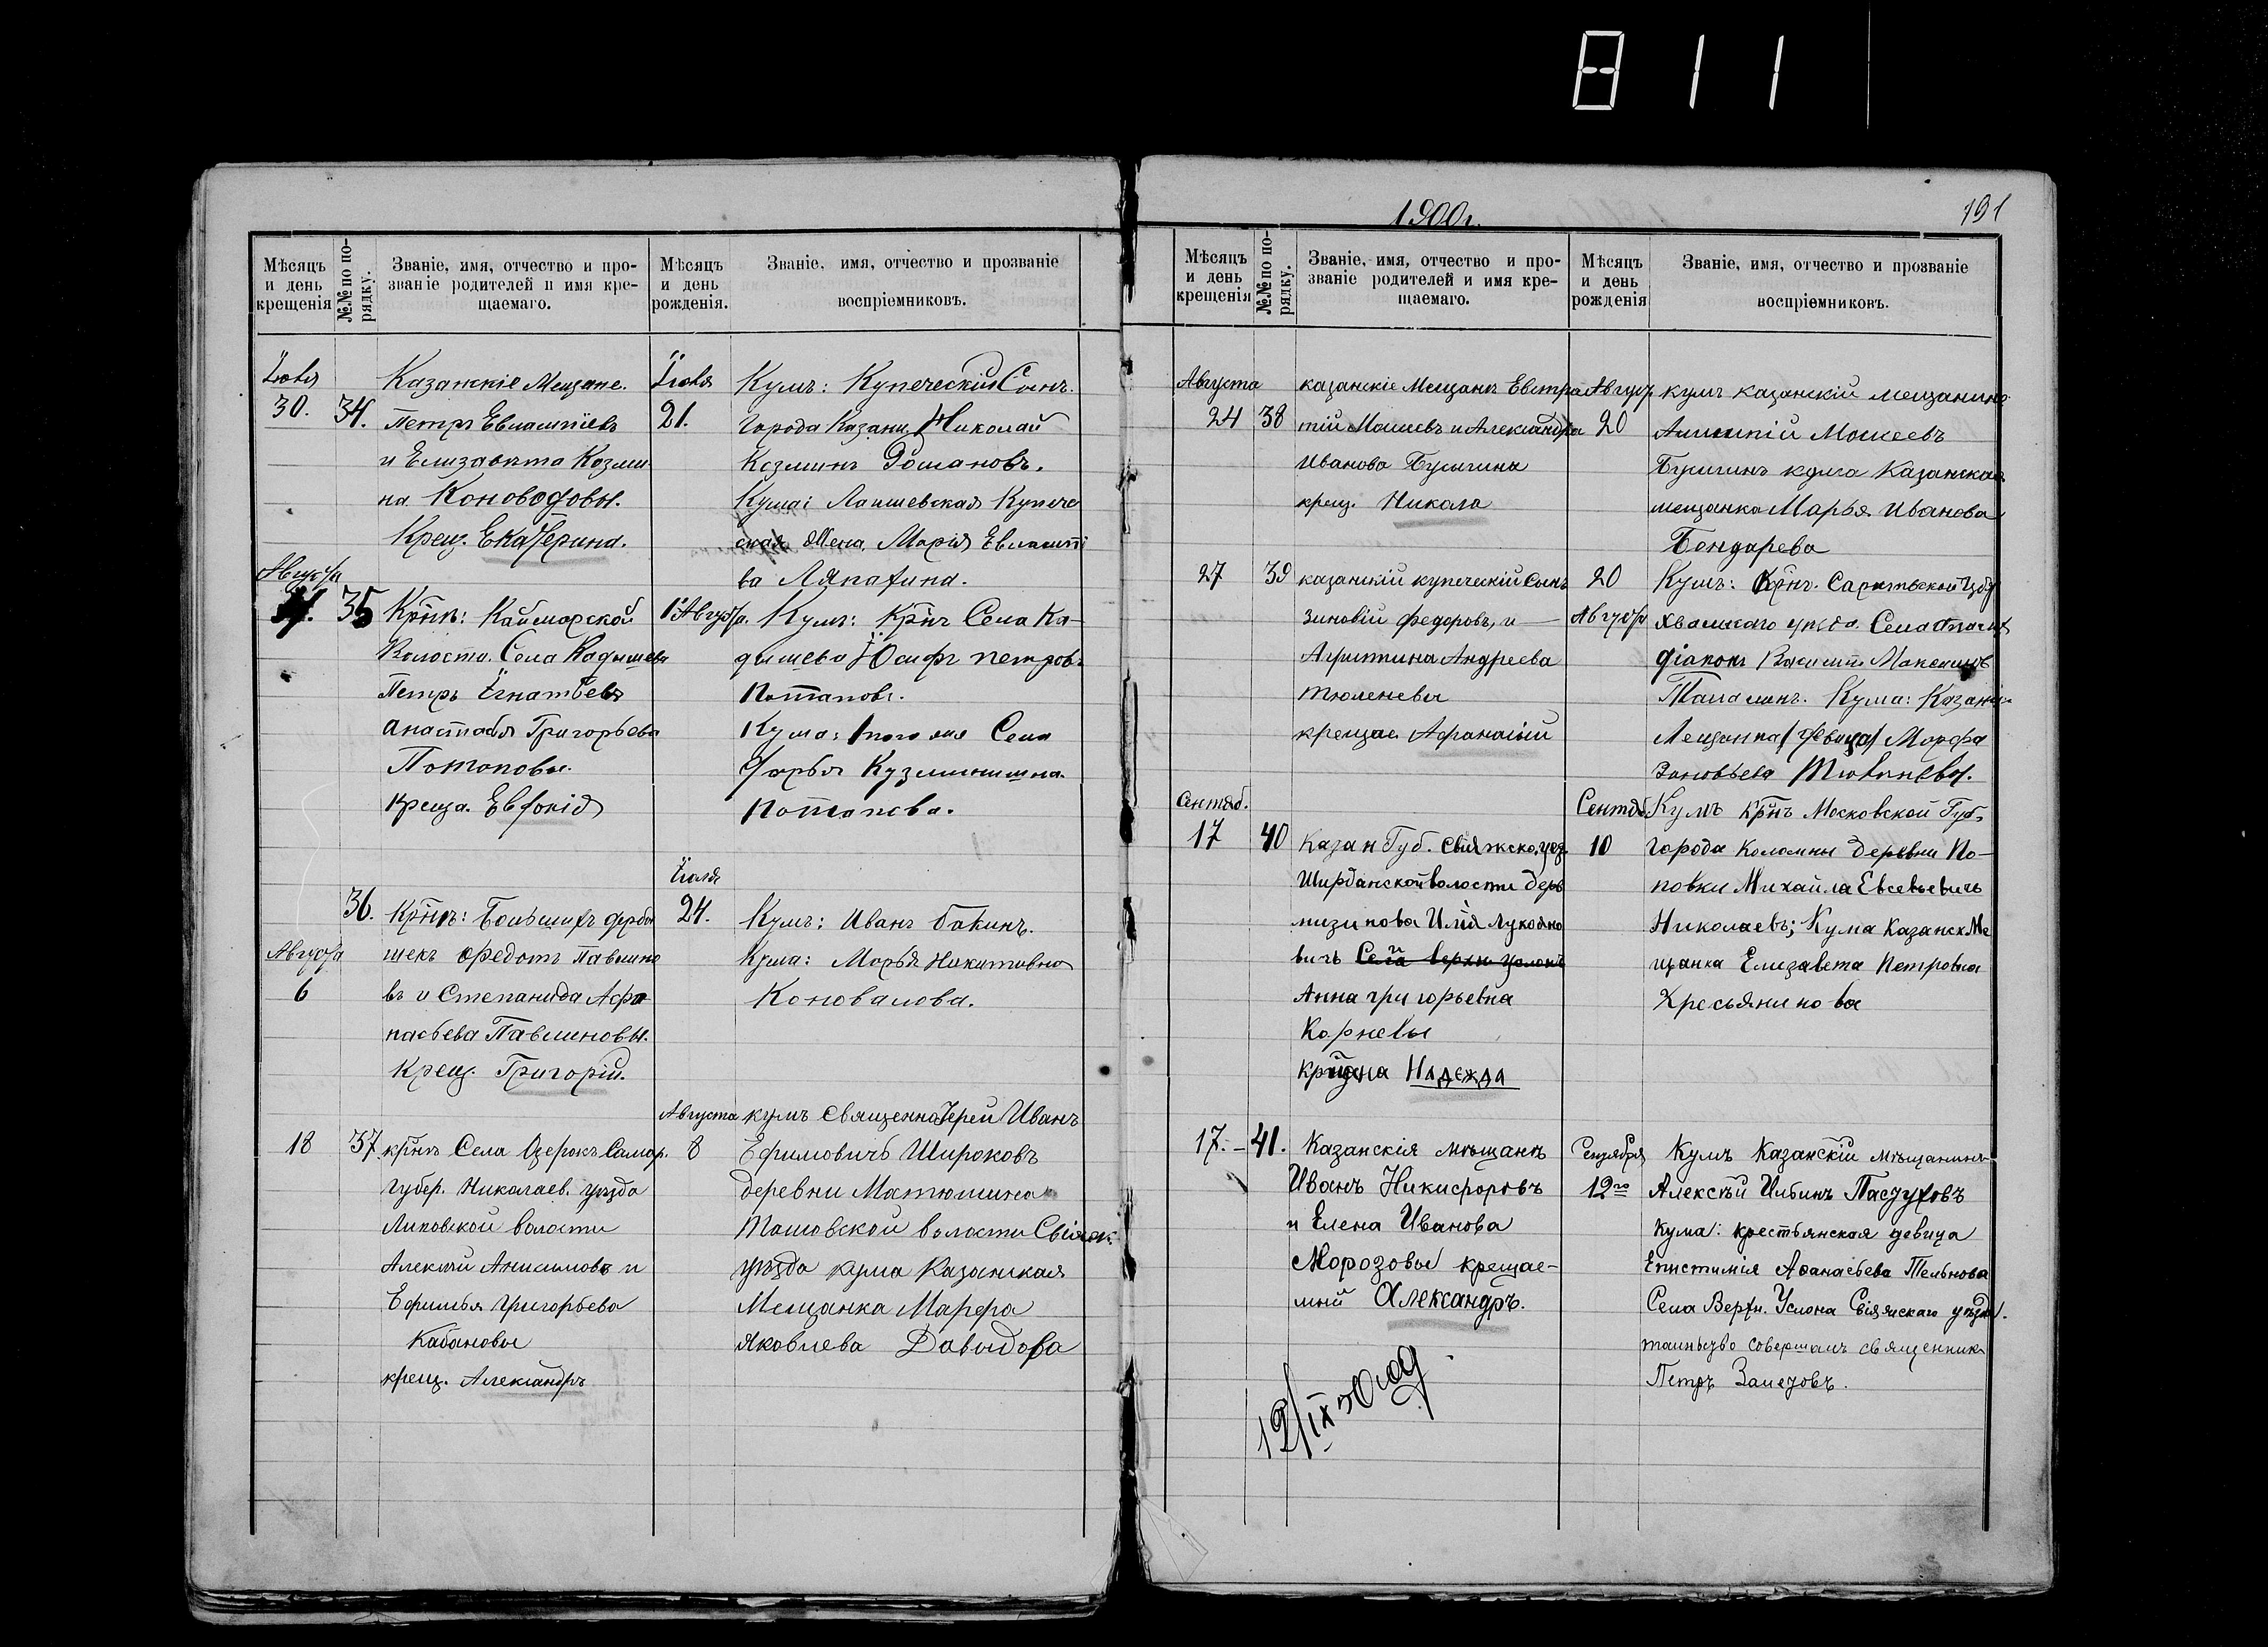 811
Мѣсяцъ и день крещенія
№№ по порядку.
Званіе, имя, отчество и прозваніе родителей и имя крещаемаго.
Мѣсяцъ и день рожденія.
Званіе, имя, отчество и прозваніе воспріемниковъ.
Іюля
30.
34.
Казанскіе Мещане.
Петръ Евлампіевъ
и Елизавѣта Козми
на Коноводовы.
Крещ. Екатерина.
Іюля
21.
Кумъ: Купеческій Сынъ.
Города Казани, Николай
Козминъ Романовъ.
Кума: Лаишевская Купече
ская Жена, Марія Евлампі
ва Ляпахина.
Августа
35
Крнъ: Каймарской
Волости. Села Кадышева
Петръ Игнатьевъ
Григорьева
Потаповы.
креща. Евдокія
1 Августа.
Кумъ: Крнъ Села Ка-
дышева Іосифъ Петровъ
Потаповъ.
Кума: того же Села
Дарья Кузминишна.
Потапова.
Августа
6
36.
Крнъ: Большихъ дерби
шекъ Федотъ Павлино
въ и Степанида Афа
насьева Павлиновы.
Крещ. Григорій.
Іюля
24.
Кумъ: Иванъ Бабинъ.
Кума: Марья Никитивна
Коновалова.
18
37.
крнъ Села Озерокъ Самар.
Губер. Николаев. уѣзда
Липовской волости
Алексѣй Анисимовъ и
Ефимья Григорьева
Кабановы
крещ. Александръ
Августа
8
кумъ Священно Іерей Иванъ
Ефимовичъ Широковъ
деревни Матюшина
Ташовской волости Свіяжк.
уѣзда кума Казанская
Мещанка Марфа
Яковлева Давыдова
1900 г.
191
Мѣсяцъ и день крещенія
№№ по порядку.
Званіе, имя, отчество и прозваніе родителей и имя крещаемаго.
Мѣсяцъ и день рожденія
Званіе, имя, отчество и прозваніе воспріемниковъ.
Августа
24
38
казанскіе Мещанъ Евстра
тій Мокеевъ и Александра
Иванова Булыгины
крещ. Никола
Август
20
кумъ казанскій мещанинъ
Мокеевъ
Булыгинъ кума Казанская
мещанка Марья Иванова
Бондарева
27
39
казанскій купеческій сынъ
Зиновій Федоровъ, и
Андреева
Тюленевы
крещае Афанасій
20
Августа
Кумъ: Крнъ. Саратовской Губ
уѣзда. Села
діаконъ Максимовъ
Кума: Казанск
Мещанка /девица/ Марфа
Зиновьева Тюленева.
Сентяб.
17
40
Казан Губ. Свіяжско. уез.
Ширданской волости дерв
Илія Лукояно
вичъ Села верхн услонъ
Анна григорьевна
Корневы
Надежда
Сентяб.
10
Кумъ крнъ Московской Губ.
города Коломны деревни По-
повки Михаила Евсевьевичъ
Николаевъ; Кума казанск Ме
щанка Елизавета Петровна
Хресьянинова
17. – 41.
Казанскія мѣщанъ
Иванъ Никифоровъ
и Елена Иванова
Морозовы крещае-
мый Александръ.
Сентября
12го
Кумъ Казанскій мѣщанинъ
Алексѣй Ильинъ Пастуховъ
кума: крестьянская девица
Епистимія Аѳанасьева Тельнова
Села Верхн. Услона Свіяжскаго уѣзда.
таинство совершалъ священникъ
Петръ
12/IX